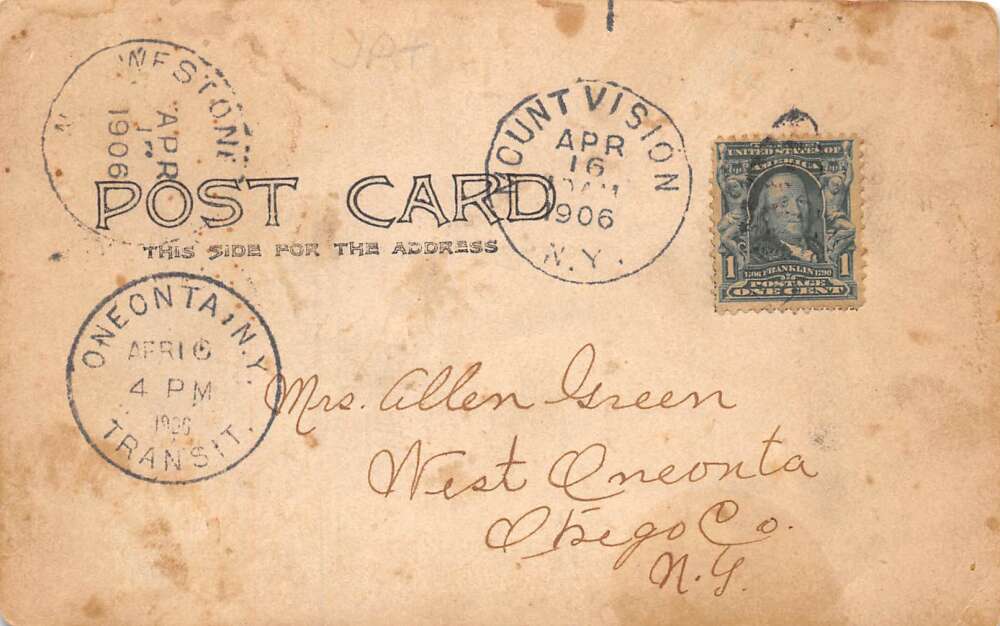 WESTONE
APR
1906
MOUNT VISION
APR
16
1906
N.Y.
UNITED STATES OF
AMERICA
1 1706 FRANKLIN 1790 1
POSTAGE
ONE CENT
POST CARD
THIS SIDE FOR THE ADDRESS
ONEONTA, N.Y.
APR 16
4 PM
1906
TRANSIT.
Mrs. Allen Green
West Oneonta
Otsego Co.
N.Y.